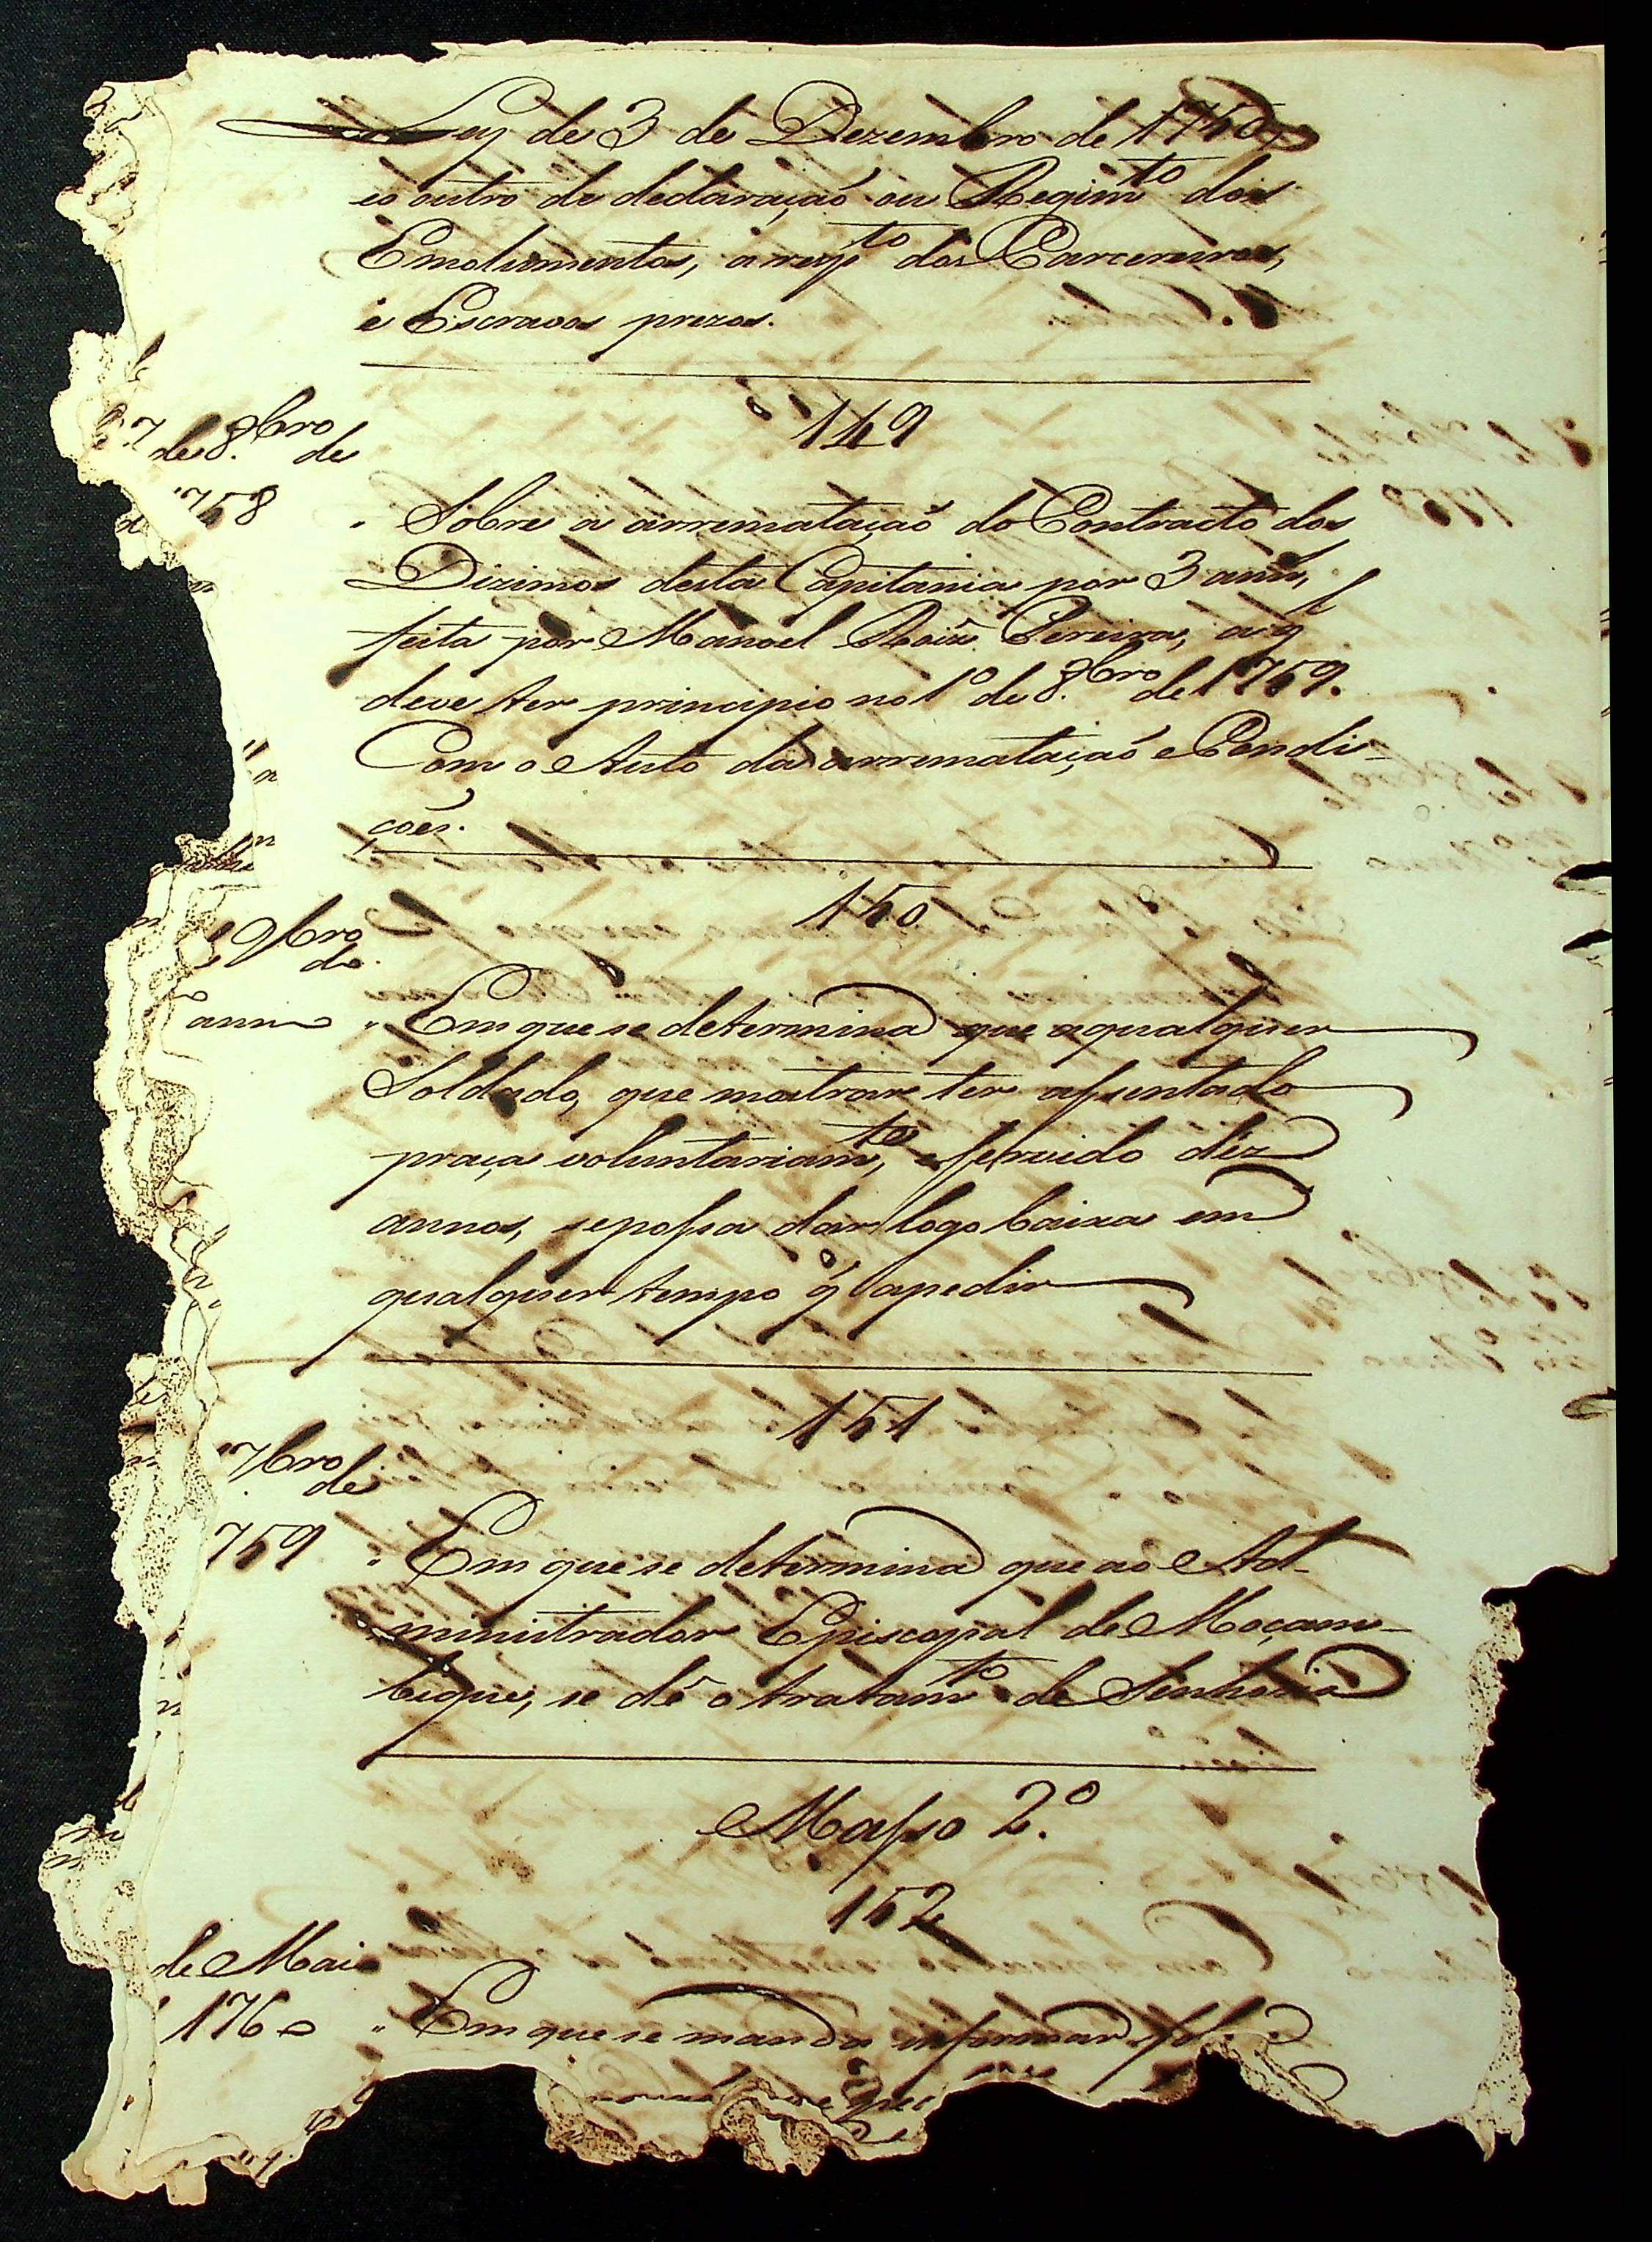 Ley de 3 de Dezembro de 1750,
eo outro de declaração ou Regim.to dos
Emolumentos, a resp.to dos Carcereiros,
e Escravos prezos.
149
27 de 8.bro de
1758
" Sobre a arremataçaõ do Contracto dos
Dizimos desta Capitania por 3 ann.s
feita por Manoel Roiz Pereira, a q
deve ter principio no 1.º de 8.bro de 1759.
Com o Auto da arremataçaõ e Condi-
çoẽs.
150
9bro do
anno
" Em que se determina que a qualquer
Soldado, que mostrar ter assentado
praça voluntariam.te, e servido déz
annos, se possa dar logo baixa em
qualquer tempo q̃ a pedir
151
7bro de
759
" Em que se determina que ao Ad-
ministrador Episcopal de Moçam-
bique, se dê o tratam.to de Senhoria
Masso 2.º
152
de Maio
1760
" Em que se manda informar
que